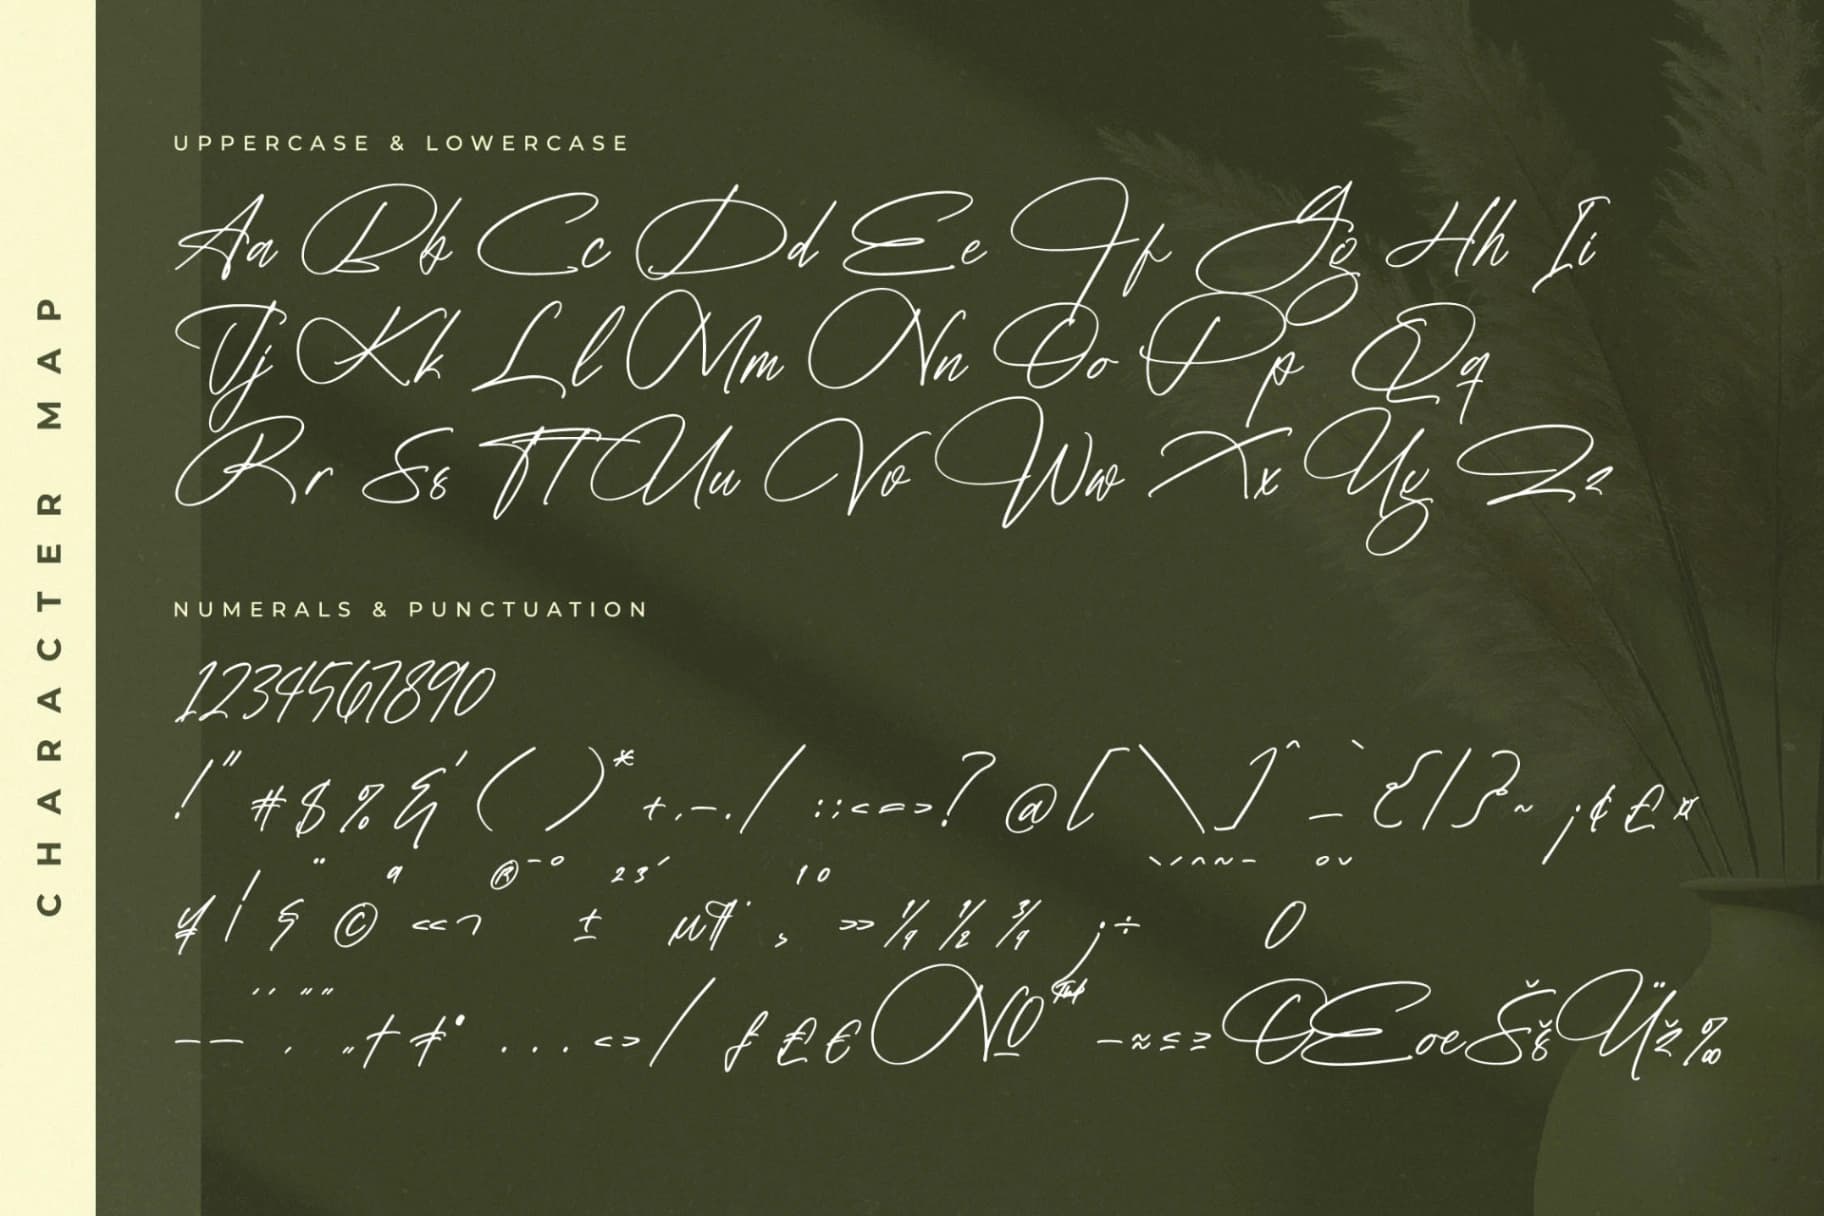 CHARACTER MAP
UPPERCASE & LOWERCASE
Aa Bb Cc Dd Ee Ff Gg Hh Ii
Jj Kk Ll Mm Nn Oo Pp Qq
Rr Ss Tt Uu Vv Ww Xx Yy Zz
NUMERALS & PUNCTUATION
1234567890
!"#$%&'()*+,-./:;<=>?@[\]^_`{|}~¡¢£¤
¥¦§¨©ª«¬®¯°±²³´µ¶·¸¹º»¼½¾¿ˋˊˆ˜ˉ÷˚ˇ0
–—‘’‚“”„†‡•...‹›⁄ƒ₤€№™−≈≤≥ŒœŠšŸž‰